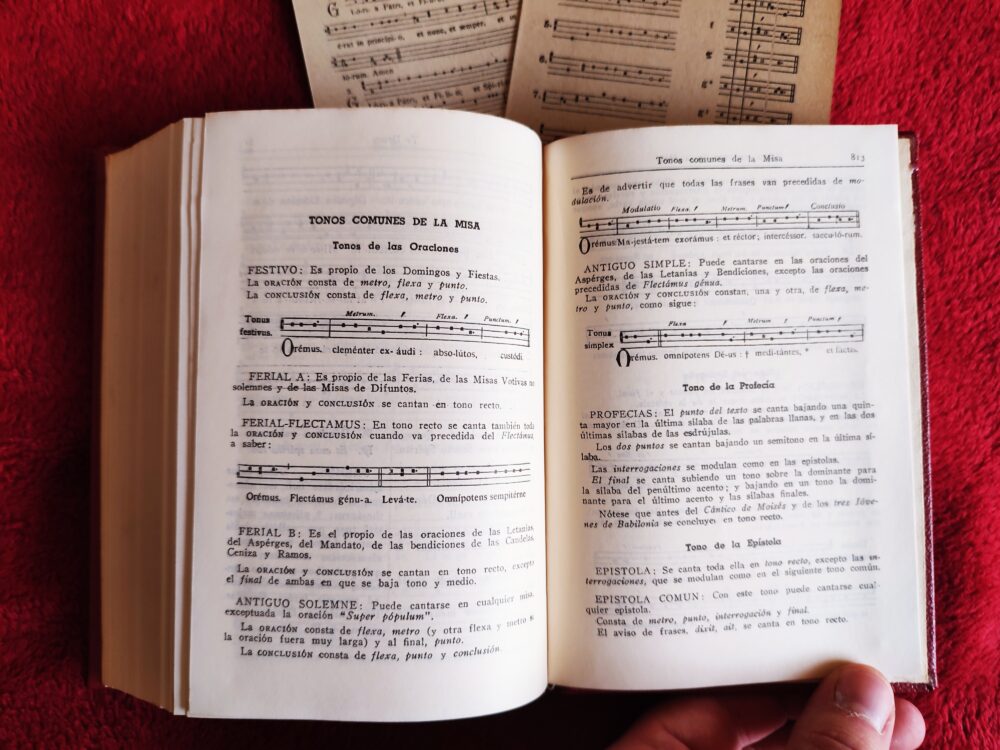 G
Lóri a Patri, et Fi-li-o,
érat in princípi-o, et nunc, et semper, et in
lórum. Amen
G
Lóri-a Patri, et Fí-li-o, et Spirí-
5.
6.
7.
f
g
g²
TONOS COMUNES DE LA MISA
Tonos de las Oraciones
FESTIVO: Es propio de los Domingos y Fiestas.
La ORACIÓN consta de metro, flexa y punto.
La CONCLUSIÓN consta de flexa, metro y punto.
Metrum. Flexa. Punctum.
Tonus
festivus.
Orémus. cleménter ex-áudi: abso-lútos, custódi.
FERIAL A: Es propio de las Ferias, de las Misas Votivas no
solemnes y de las Misas de Difuntos.
La ORACIÓN y CONCLUSIÓN se cantan en tono recto.
FERIAL-FLECTAMUS: En tono recto se canta también toda
la ORACIÓN y CONCLUSIÓN cuando va precedida del Flectámus,
a saber:
Orémus. Flectámus génu-a. Levá-te. Omnípotens sempitérne
FERIAL B: Es el propio de las oraciones de las Letanías,
del Aspérges, del Mandato, de las bendiciones de las Candelas,
Ceniza y Ramos.
La ORACIÓN y CONCLUSIÓN se cantan en tono recto, excepto
el final de ambas en que se baja tono y medio.
ANTIGUO SOLEMNE: Puede cantarse en cualquier misa,
exceptuada la oración "Super pópulum".
La ORACIÓN consta de flexa, metro (y otra flexa y metro si
la oración fuera muy larga) y al final, punto.
La CONCLUSIÓN consta de flexa, punto y conclusión.
Tonos comunes de la Misa 813
Es de advertir que todas las frases van precedidas de mo-
dulación.
Modulatio Flexa. Metrum. Punctum Conclusio
Orémus: Ma-jestá-tem exorámus: et réctor; intercéssor. sæcu-ló-rum.
ANTIGUO SIMPLE: Puede cantarse en las oraciones del
Aspérges, de las Letanías y Bendiciones, excepto las oraciones
precedidas de Flectámus génua.
La ORACIÓN y CONCLUSIÓN constan, una y otra, de flexa, me-
tro y punto, como sigue:
Flexa Metrum Punctum
Tonus
simplex
Orémus. omnípotens Dé-us: † medi-tántes, * et factas.
Tono de la Profecía
PROFECIAS: El punto del texto se canta bajando una quin-
ta mayor en la última sílaba de las palabras llanas, y en las dos
últimas sílabas de las esdrújulas.
Los dos puntos se cantan bajando un semitono en la última sí-
laba.
Las interrogaciones se modulan como en las epístolas.
El final se canta subiendo un tono sobre la dominante para
la sílaba del penúltimo acento; y bajando en un tono la domi-
nante para el último acento y las sílabas finales.
Nótese que antes del Cántico de Moisés y de los tres Jóve-
nes de Babilonia se concluye en tono recto.
Tono de la Epístola
EPISTOLA: Se canta toda ella en tono recto, excepto las in-
terrogaciones, que se modulan como en el siguiente tono común.
EPISTOLA COMUN: Con este tono puede cantarse cual-
quier epístola.
Consta de metro, punto, interrogación y final.
El aviso de frases, dixit, ait, se canta en tono recto.